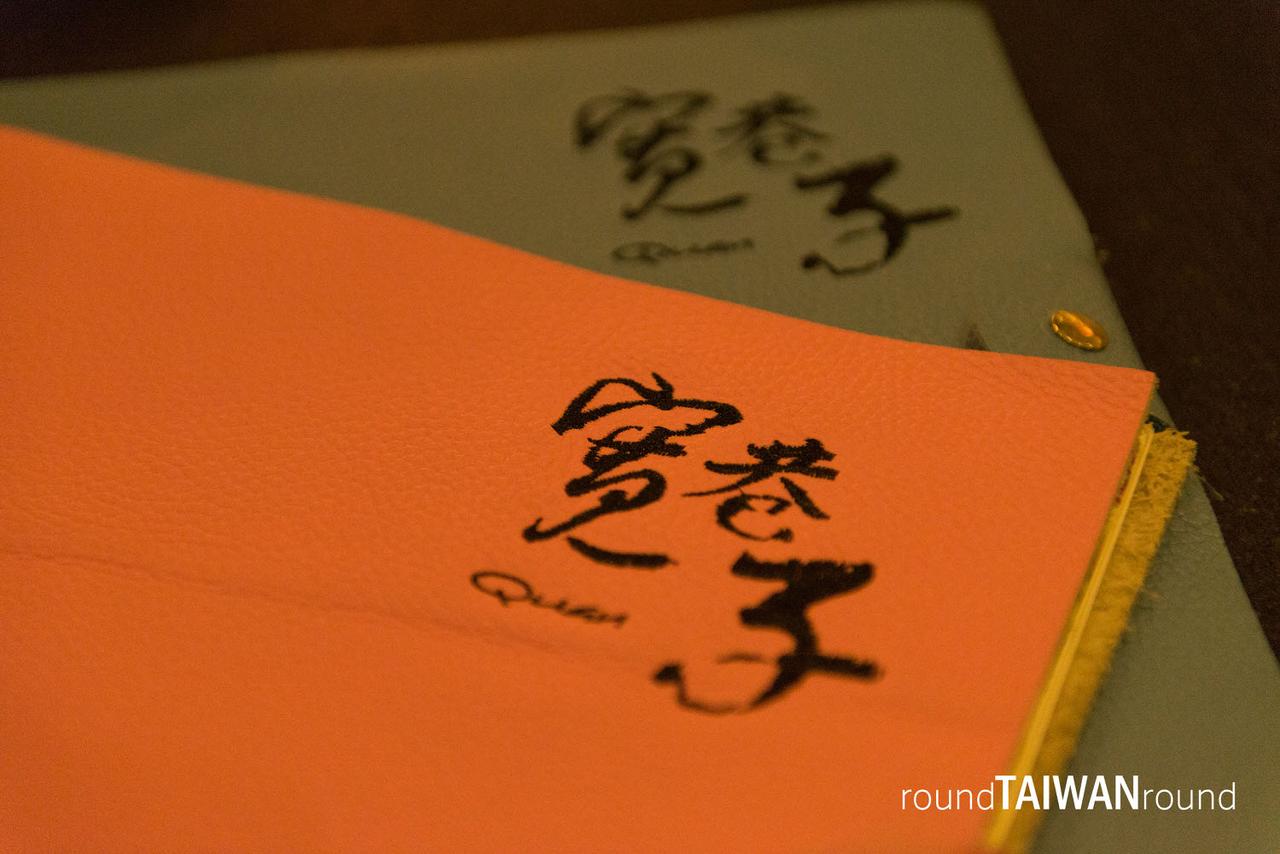 寬巷子
Quan
寬巷子
Quan
roundTAIWANround